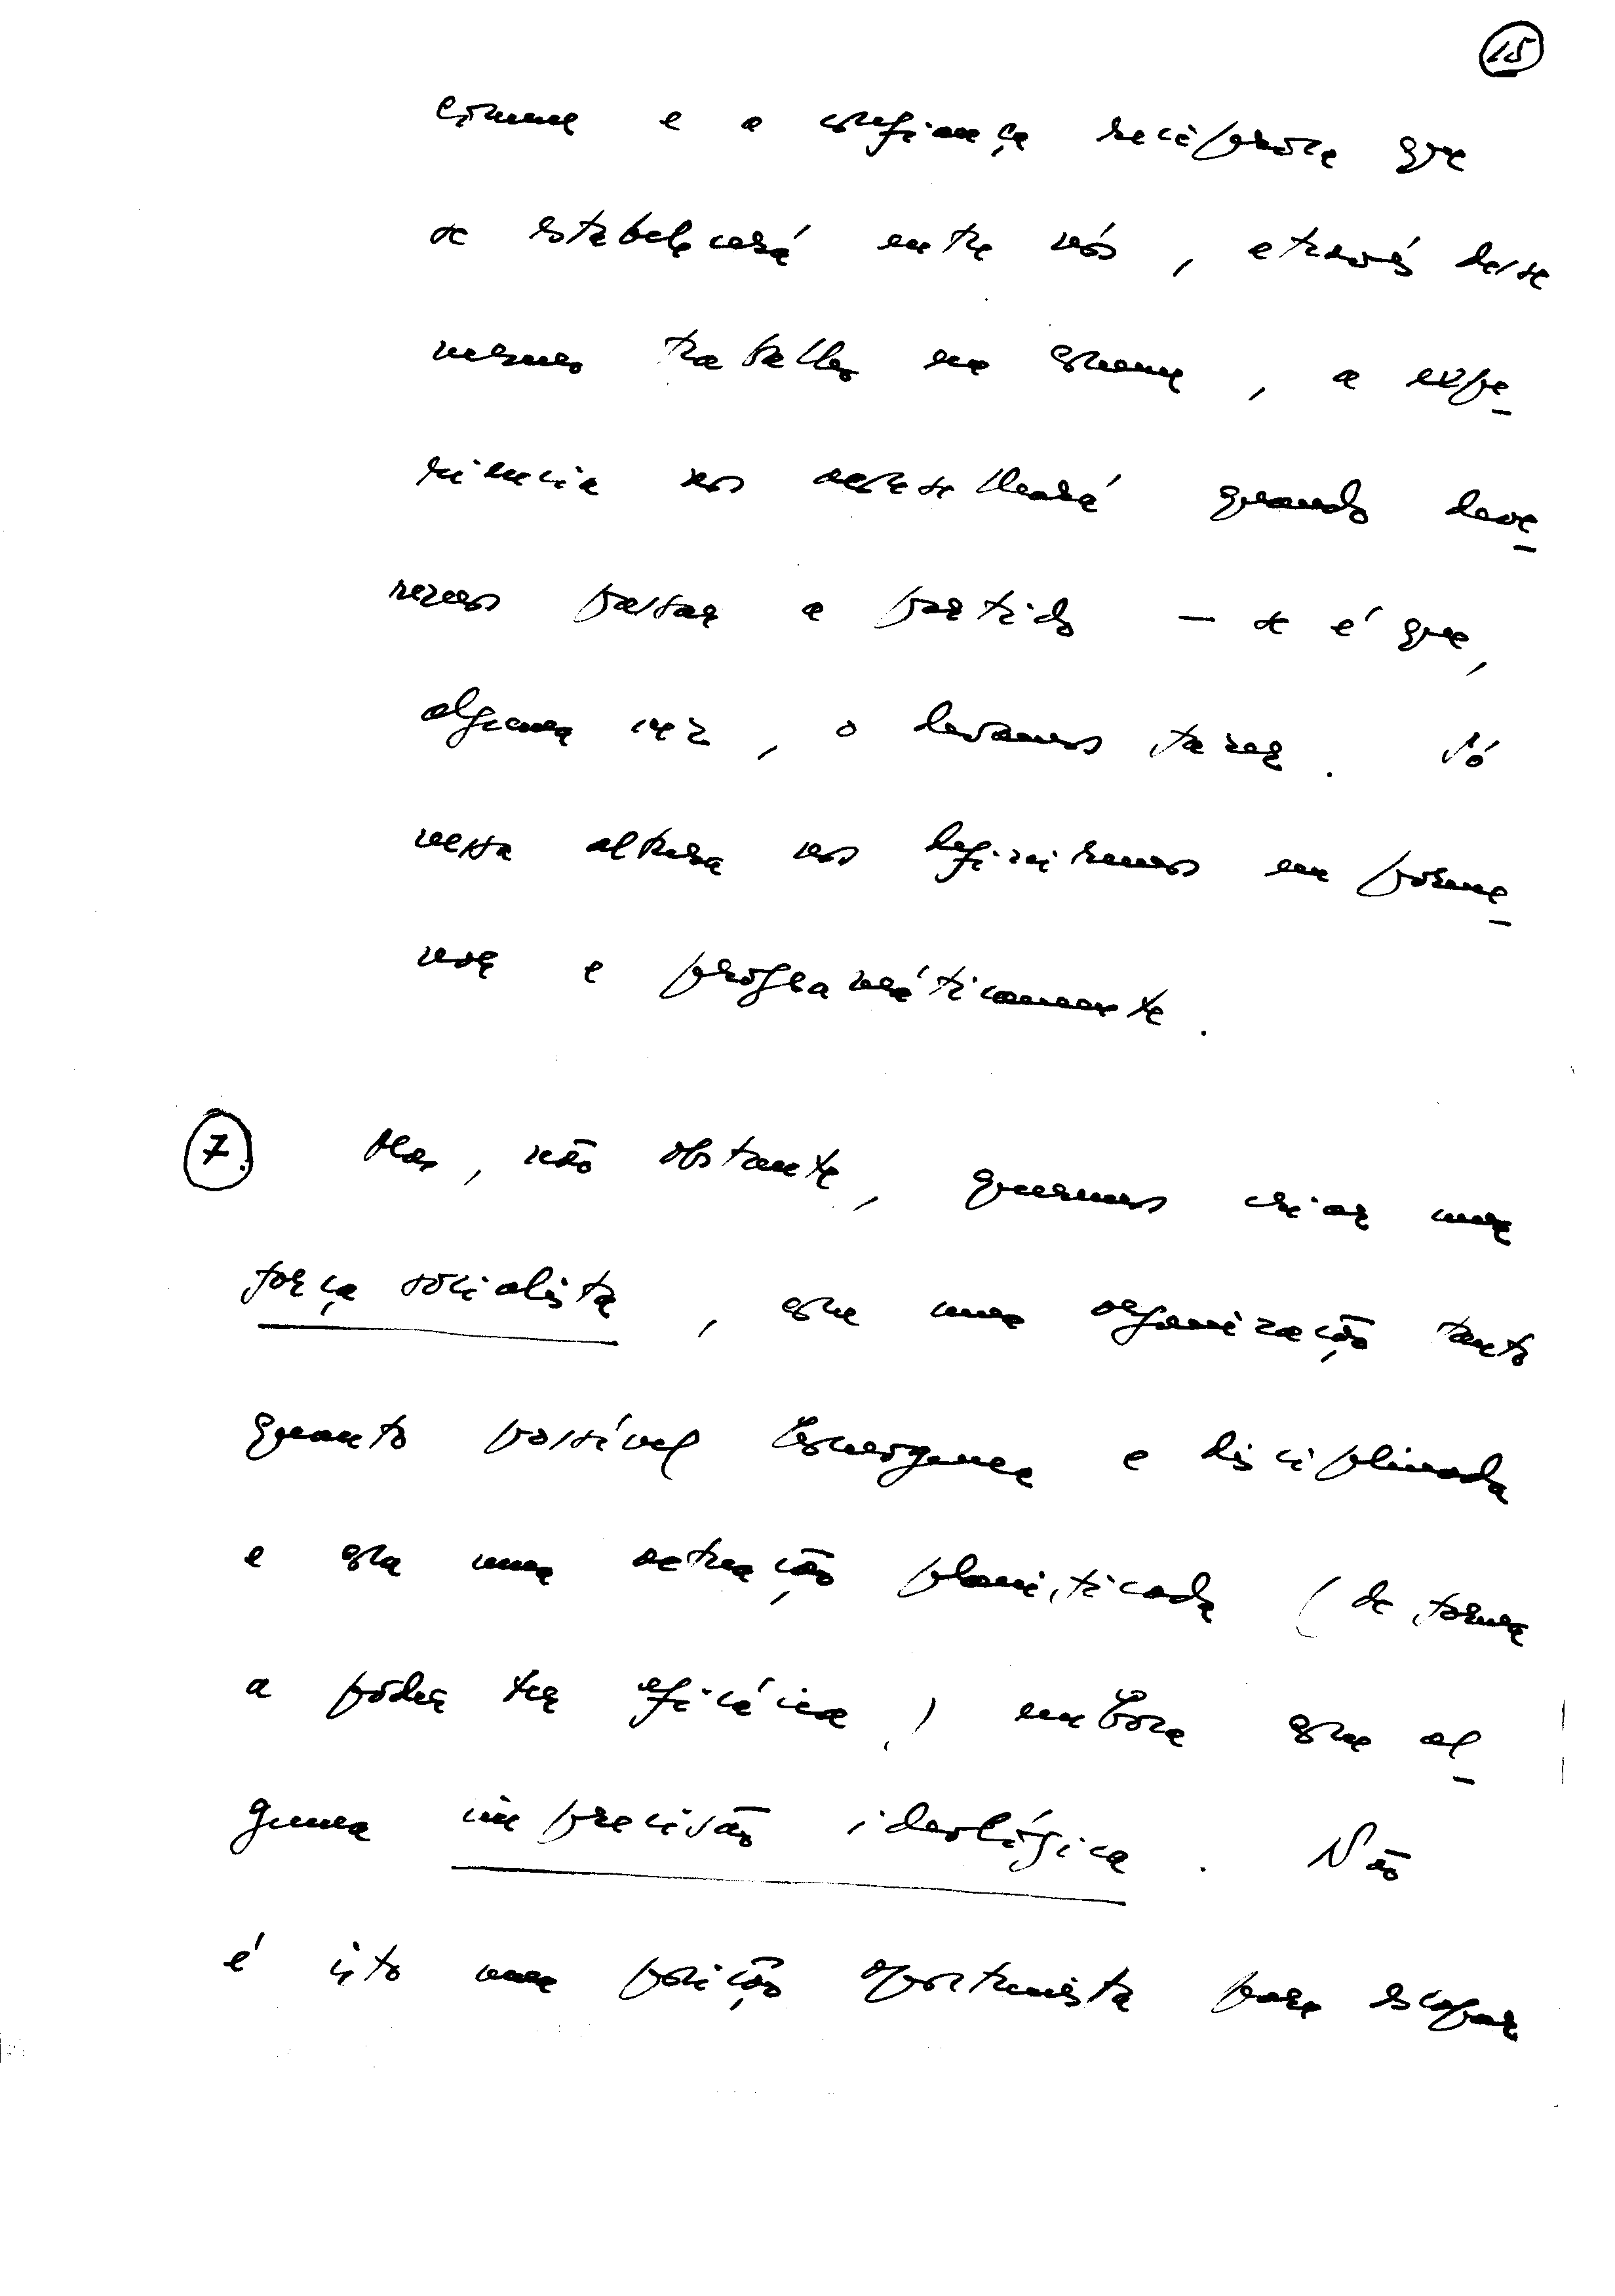 15
comum e a confiança recíproca que
se estabelecerá entre nós, através desse
mesmo trabalho em comum, a expe-
riência nos aconselhará quando deve-
remos passar a partido — se é que,
alguma vez, o devamos fazer. Só
nessa altura nos definiremos em porme-
nor e programáticamente.
7. Mas, não obstante, queremos criar uma
força socialista, com uma organização tanto
quanto possível homogénea e disciplinada
e com uma actuação planificada (de forma
a poder ter eficácia) embora com al-
guma imprecisão ideológica. Não
é isto uma posição oportunista para escapar